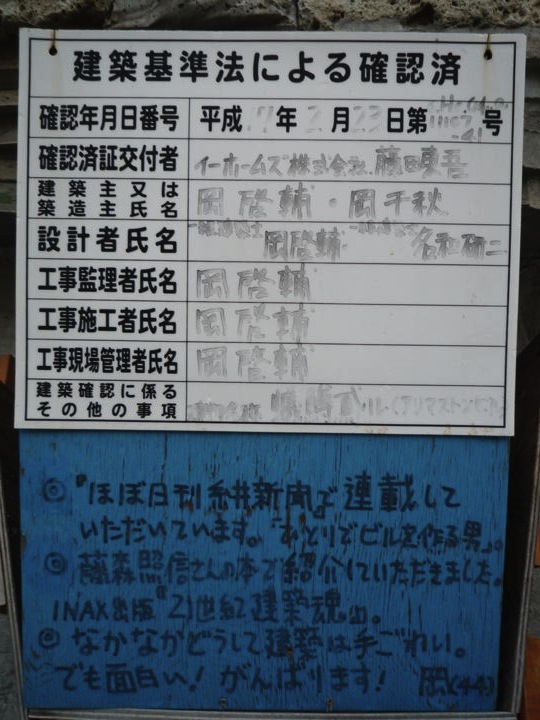 建築基準法による確認済
確認年月日番号 平成17年2月23日第号
確認済証交付者 イーホームズ株式会社 藤田東吾
建築主又は
築造主氏名 岡啓輔・岡千秋
設計者氏名 岡啓輔 名和研二
工事監理者氏名 岡啓輔
工事施工者氏名 岡啓輔
工事現場管理者氏名 岡啓輔
建築確認に係る
その他の事項
◎『ほぼ日刊糸井新聞』で連載して
いただいています。「ひとりでビルを作る男」。
◎藤森照信さんの本で紹介していただきました。
INAX出版『21世紀建築魂』。
◎なかなかどうして建築は手ごわい。
でも面白い!がんばります! 岡(44)